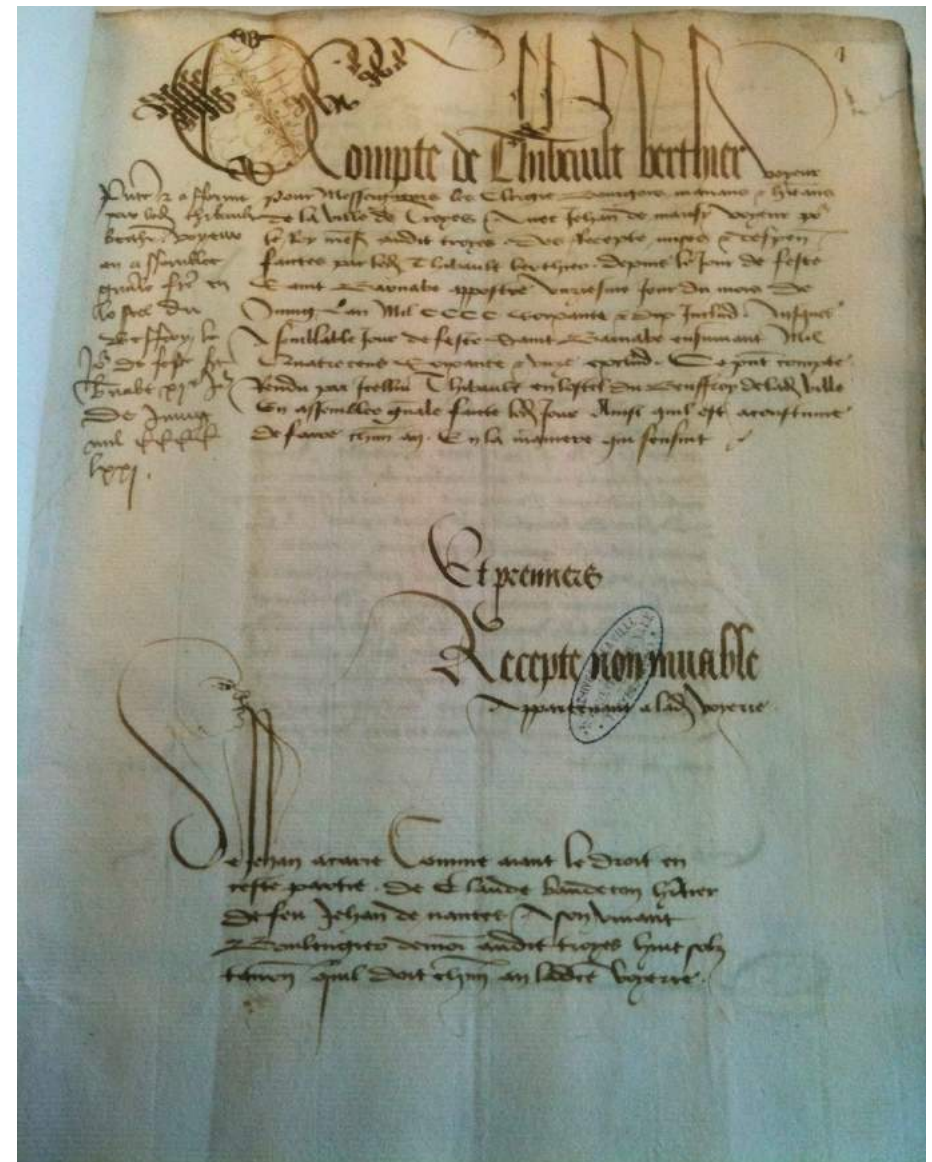 Compte de Thibault berthier voyeur
pour Messeigneurs les Clergie Bourgois manans & hitans
de la Ville de Troyes Avec Jehan de mausy voyeur po
le Roy audit troyes Des Recepte mises & despen
faictes par led Thibault berthier depuis le Jour de feste
Saint Barnabe appostre unziesme Jour du mois de
Juing Lan Mil CCCC soixante & dix Includ Jusques
A semblable Jour de feste Saint Barnabe ensuivant Mil
Quatre cens soixante & unze exclud Ce pnt compte
Rendu par Icellui Thibault en lostel du Beuffroy de lad Ville
En assemblee gnale faicte led Jour Ainsi quil est acoustume
de faire chun an En la maniere qui sensuit
par led thibault
berthier voyeur
en assemblee
gnale en
lostel du
Beffroy le
Jo de feste st
Barnabe xje Jo
De Juing
mil CCCC
lxxj.
Et premiers
Recepte non muable
Appartenant a lad voyerie
De Jehan acarie Comme aiant le droit en
ceste partie de Claude baudecon hitier
de feu Jehan de nantes A son vivant
Boulengier demor audit troyes huit solz
tourn quil doit chun an ladicte voyerie.